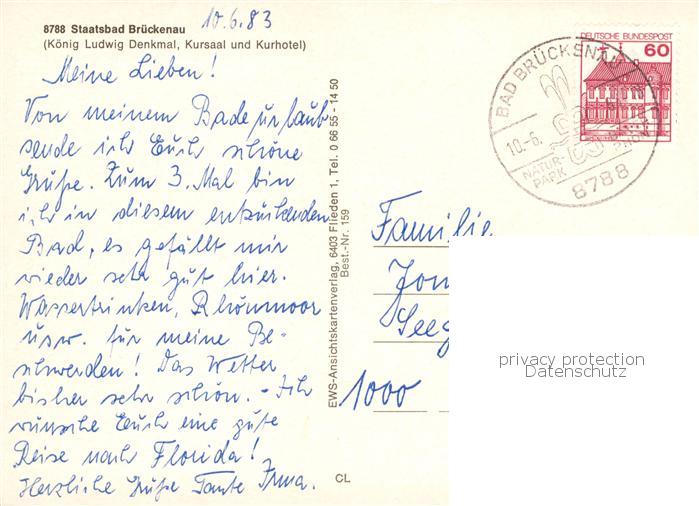 10.6.83
8788 Staatsbad Brückenau
(König Ludwig Denkmal, Kursaal und Kurhotel)
Meine Lieben!
Von meinem Badeurlaub
sende ich Euch schöne
Grüße. Zum 3. Mal bin
ich in diesem entzückenden
Bad, es gefällt mir
wieder sehr gut hier.
Wassertrinken, Rhönmoor
usw. für meine Be-
schwerden! Das Wetter
bisher sehr schön. - Ich
wünsche Euch eine gute
Reise nach Florida!
Herzliche Grüße Tante Irma.
EWS-Ansichtskartenverlag, 6403 Flieden 1, Tel. 0 66 55 - 14 50
Best.-Nr. 159
CL
BAD BRÜCKENAU
10.-6.
NATUR-
PARK
8788
DEUTSCHE BUNDESPOST
60
Familie
1000
privacy protection
Datenschutz